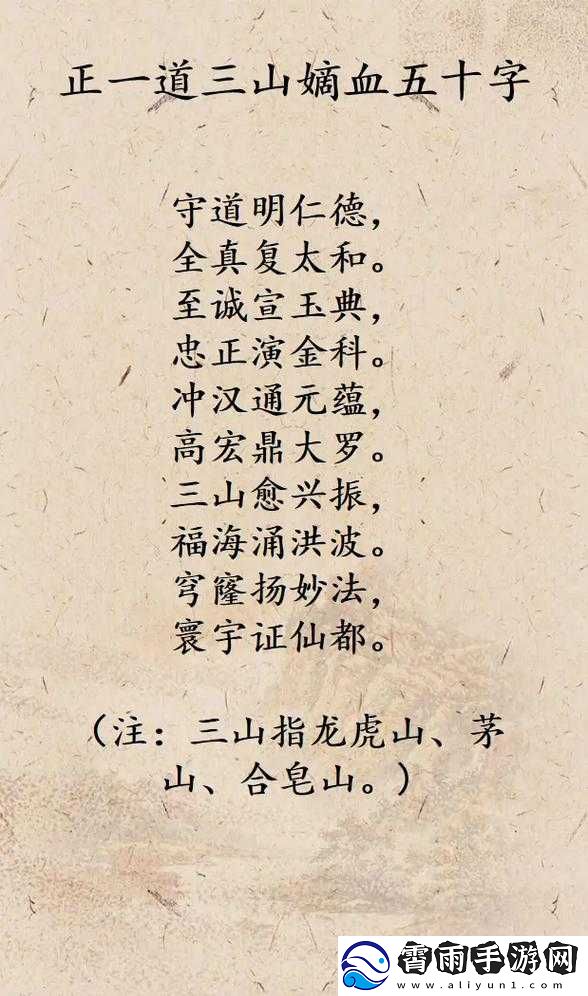 正一道三山嫡血五十字
守道明仁德，
全真复太和。
至诚宣玉典，
忠正演金科。
冲汉通元蕴，
高宏鼎大罗。
三山愈兴振，
福海涌洪波。
穹窿扬妙法，
寰宇证仙都。
（注：三山指龙虎山、茅
山、合皂山。）
霄雨手游网
www.aliyun1.com